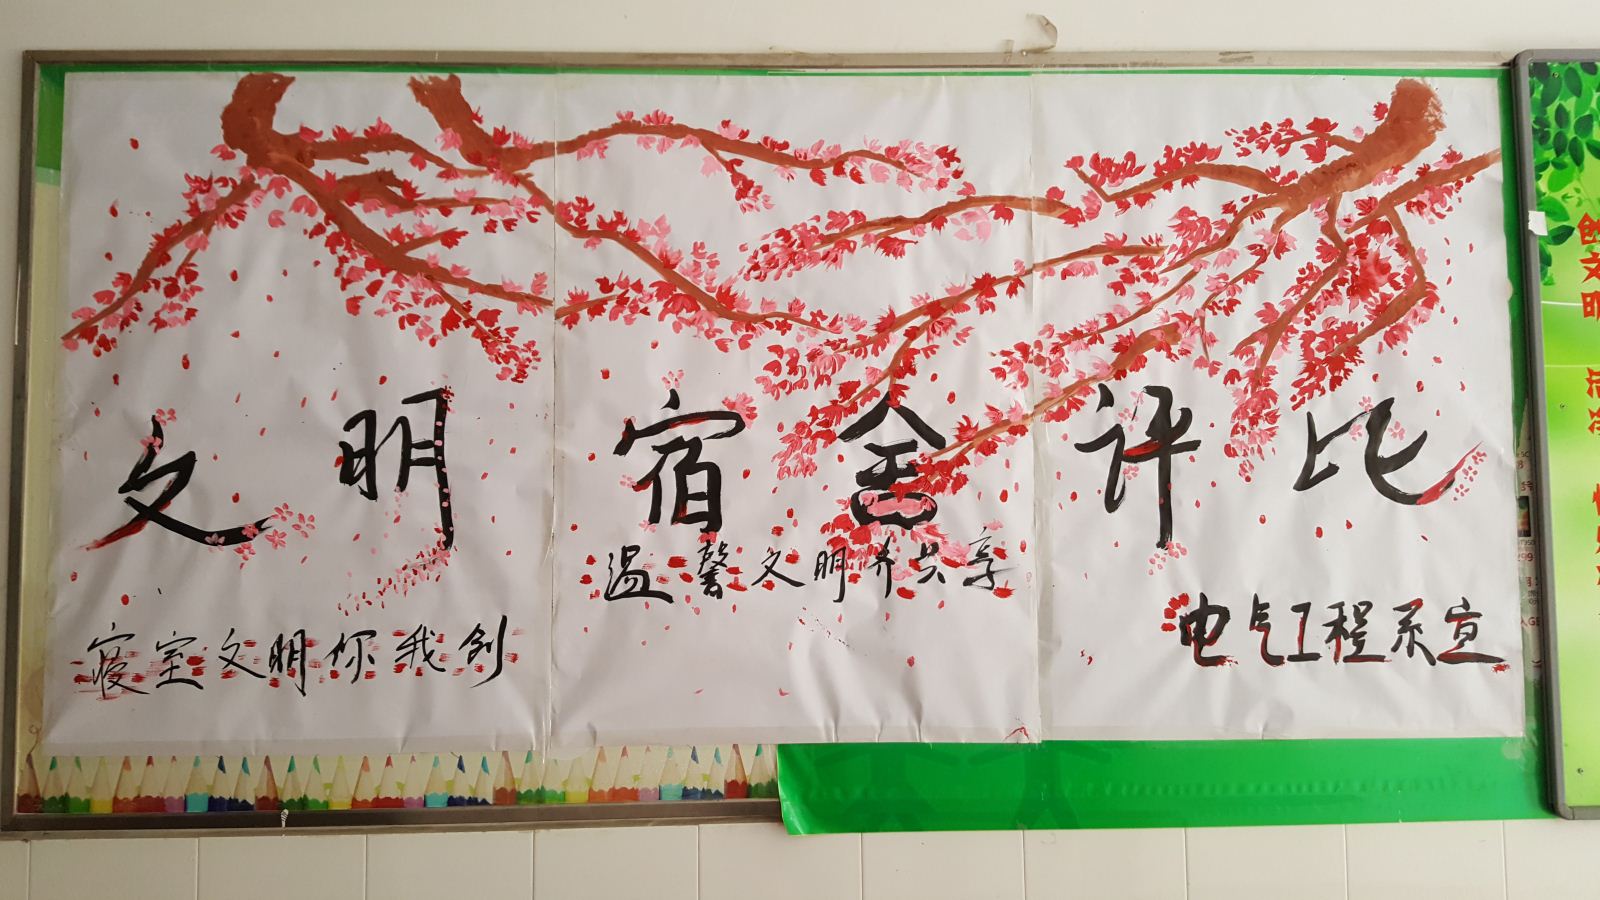 文明宿舍评比
寝室文明你我创
温馨文明齐共享
电气工程系宣